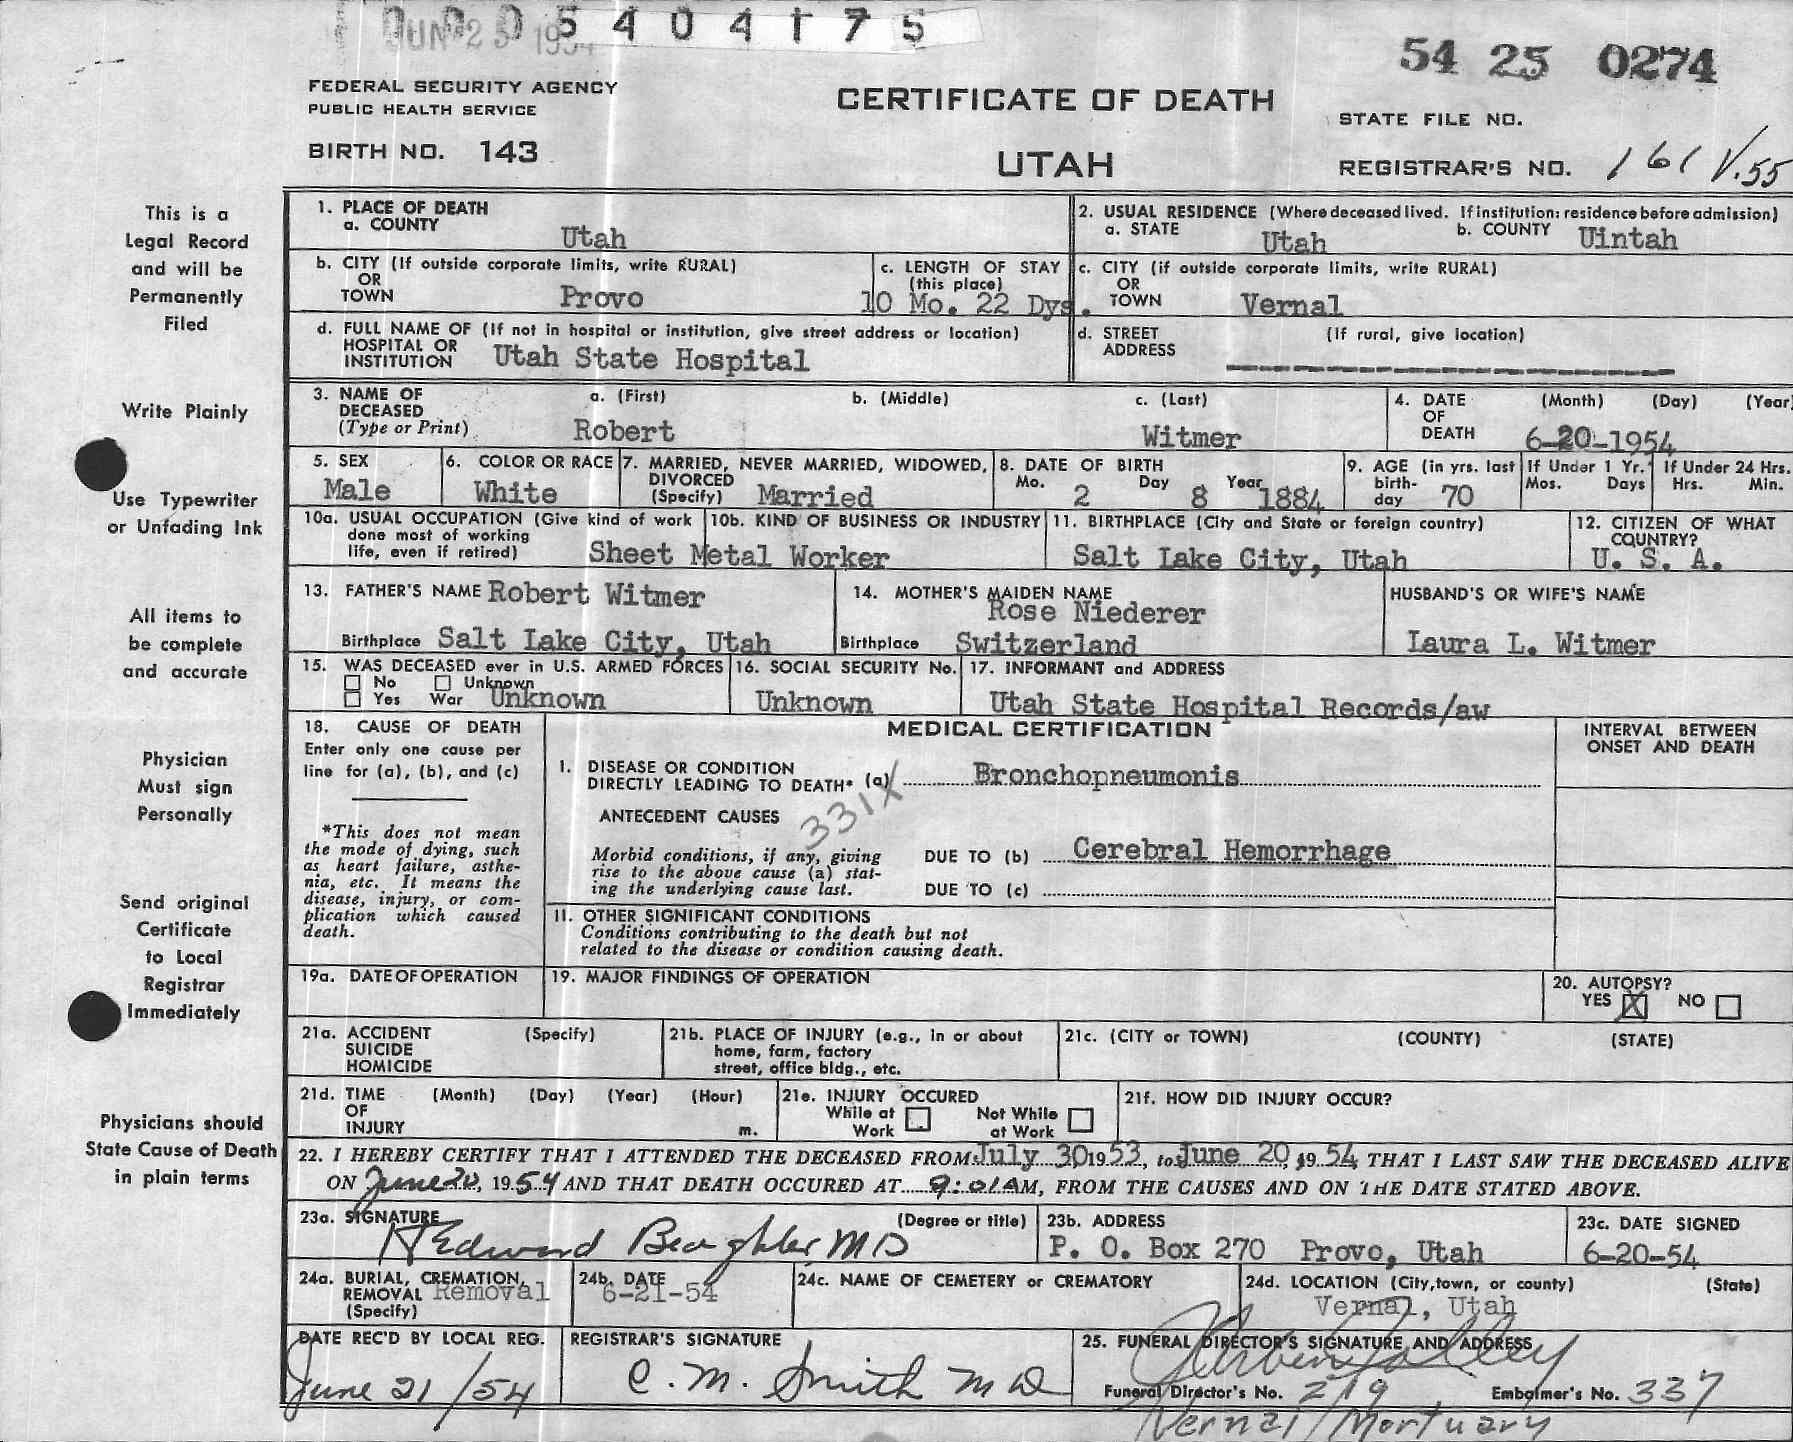 JUN 25 195
5 4 0 4 1 7 5
54 25 0274
FEDERAL SECURITY AGENCY
PUBLIC HEALTH SERVICE
CERTIFICATE OF DEATH
STATE FILE NO.
BIRTH NO. 143
UTAH
REGISTRAR'S NO. 161 V.55
This is a
Legal Record
and will be
Permanently
Filed
Write Plainly
Use Typewriter
or Unfading Ink
All items to
be complete
and accurate
Physician
Must sign
Personally
Send original
Certificate
to Local
Registrar
Immediately
Physicians should
State Cause of Death
in plain terms
1. PLACE OF DEATH
a. COUNTY Utah
2. USUAL RESIDENCE (Where deceased lived. If institution: residence before admission)
a. STATE Utah b. COUNTY Uintah
b. CITY (If outside corporate limits, write RURAL)
OR
TOWN Provo
c. LENGTH OF STAY
(this place)
10 Mo. 22 Dys.
c. CITY (if outside corporate limits, write RURAL)
OR
TOWN Vernal
d. FULL NAME OF (If not in hospital or institution, give street address or location)
HOSPITAL OR
INSTITUTION Utah State Hospital
d. STREET (If rural, give location)
ADDRESS
3. NAME OF a. (First) b. (Middle) c. (Last)
DECEASED
(Type or Print) Robert Witmer
4. DATE (Month) (Day) (Year
OF
DEATH 6-20-1954
5. SEX
Male
6. COLOR OR RACE
White
7. MARRIED, NEVER MARRIED, WIDOWED,
DIVORCED
(Specify) Married
8. DATE OF BIRTH
Mo. Day Year
2 8 1884
9. AGE (in yrs. last
birth-
day 70
If Under 1 Yr.
Mos. Days
If Under 24 Hrs.
Hrs. Min.
10a. USUAL OCCUPATION (Give kind of work
done most of working
life, even if retired) Sheet Metal Worker
10b. KIND OF BUSINESS OR INDUSTRY
11. BIRTHPLACE (City and State or foreign country)
Salt Lake City, Utah
12. CITIZEN OF WHAT
COUNTRY?
U. S. A.
13. FATHER'S NAME Robert Witmer
Birthplace Salt Lake City, Utah
14. MOTHER'S MAIDEN NAME
Rose Niederer
Birthplace Switzerland
HUSBAND'S OR WIFE'S NAME
Laura L. Witmer
15. WAS DECEASED ever in U.S. ARMED FORCES
No Unknown
Yes War Unknown
16. SOCIAL SECURITY No.
Unknown
17. INFORMANT and ADDRESS
Utah State Hospital Records/aw
18. CAUSE OF DEATH
Enter only one cause per
line for (a), (b), and (c)
*This does not mean
the mode of dying, such
as heart failure, asthe-
nia, etc. It means the
disease, injury, or com-
plication which caused
death.
MEDICAL CERTIFICATION
INTERVAL BETWEEN
ONSET AND DEATH
I. DISEASE OR CONDITION
DIRECTLY LEADING TO DEATH* (a) Bronchopneumonis
331X
ANTECEDENT CAUSES
Morbid conditions, if any, giving
rise to the above cause (a) stat-
ing the underlying cause last.
DUE TO (b) Cerebral Hemorrhage
DUE TO (c)
II. OTHER SIGNIFICANT CONDITIONS
Conditions contributing to the death but not
related to the disease or condition causing death.
19a. DATE OF OPERATION
19. MAJOR FINDINGS OF OPERATION
20. AUTOPSY?
YES X NO
21a. ACCIDENT (Specify)
SUICIDE
HOMICIDE
21b. PLACE OF INJURY (e.g., in or about
home, farm, factory
street, office bldg., etc.
21c. (CITY or TOWN) (COUNTY) (STATE)
21d. TIME (Month) (Day) (Year) (Hour)
OF
INJURY m.
21e. INJURY OCCURED
While at Work
Not While at Work
21f. HOW DID INJURY OCCUR?
22. I HEREBY CERTIFY THAT I ATTENDED THE DECEASED FROM July 30 1953, to June 20, 1954 THAT I LAST SAW THE DECEASED ALIVE
ON June 20, 1954 AND THAT DEATH OCCURED AT 9:01AM, FROM THE CAUSES AND ON THE DATE STATED ABOVE.
23a. SIGNATURE (Degree or title)
Edward MD
23b. ADDRESS
P. O. Box 270 Provo, Utah
23c. DATE SIGNED
6-20-54
24a. BURIAL, CREMATION,
REMOVAL Removal
(Specify)
24b. DATE
6-21-54
24c. NAME OF CEMETERY or CREMATORY
24d. LOCATION (City, town, or county) (State)
Vernal, Utah
DATE REC'D BY LOCAL REG.
June 21/54
REGISTRAR'S SIGNATURE
C. M. Smith MD
25. FUNERAL DIRECTOR'S SIGNATURE AND ADDRESS
Funeral Director's No. 219 Embalmer's No. 337
Vernal Mortuary